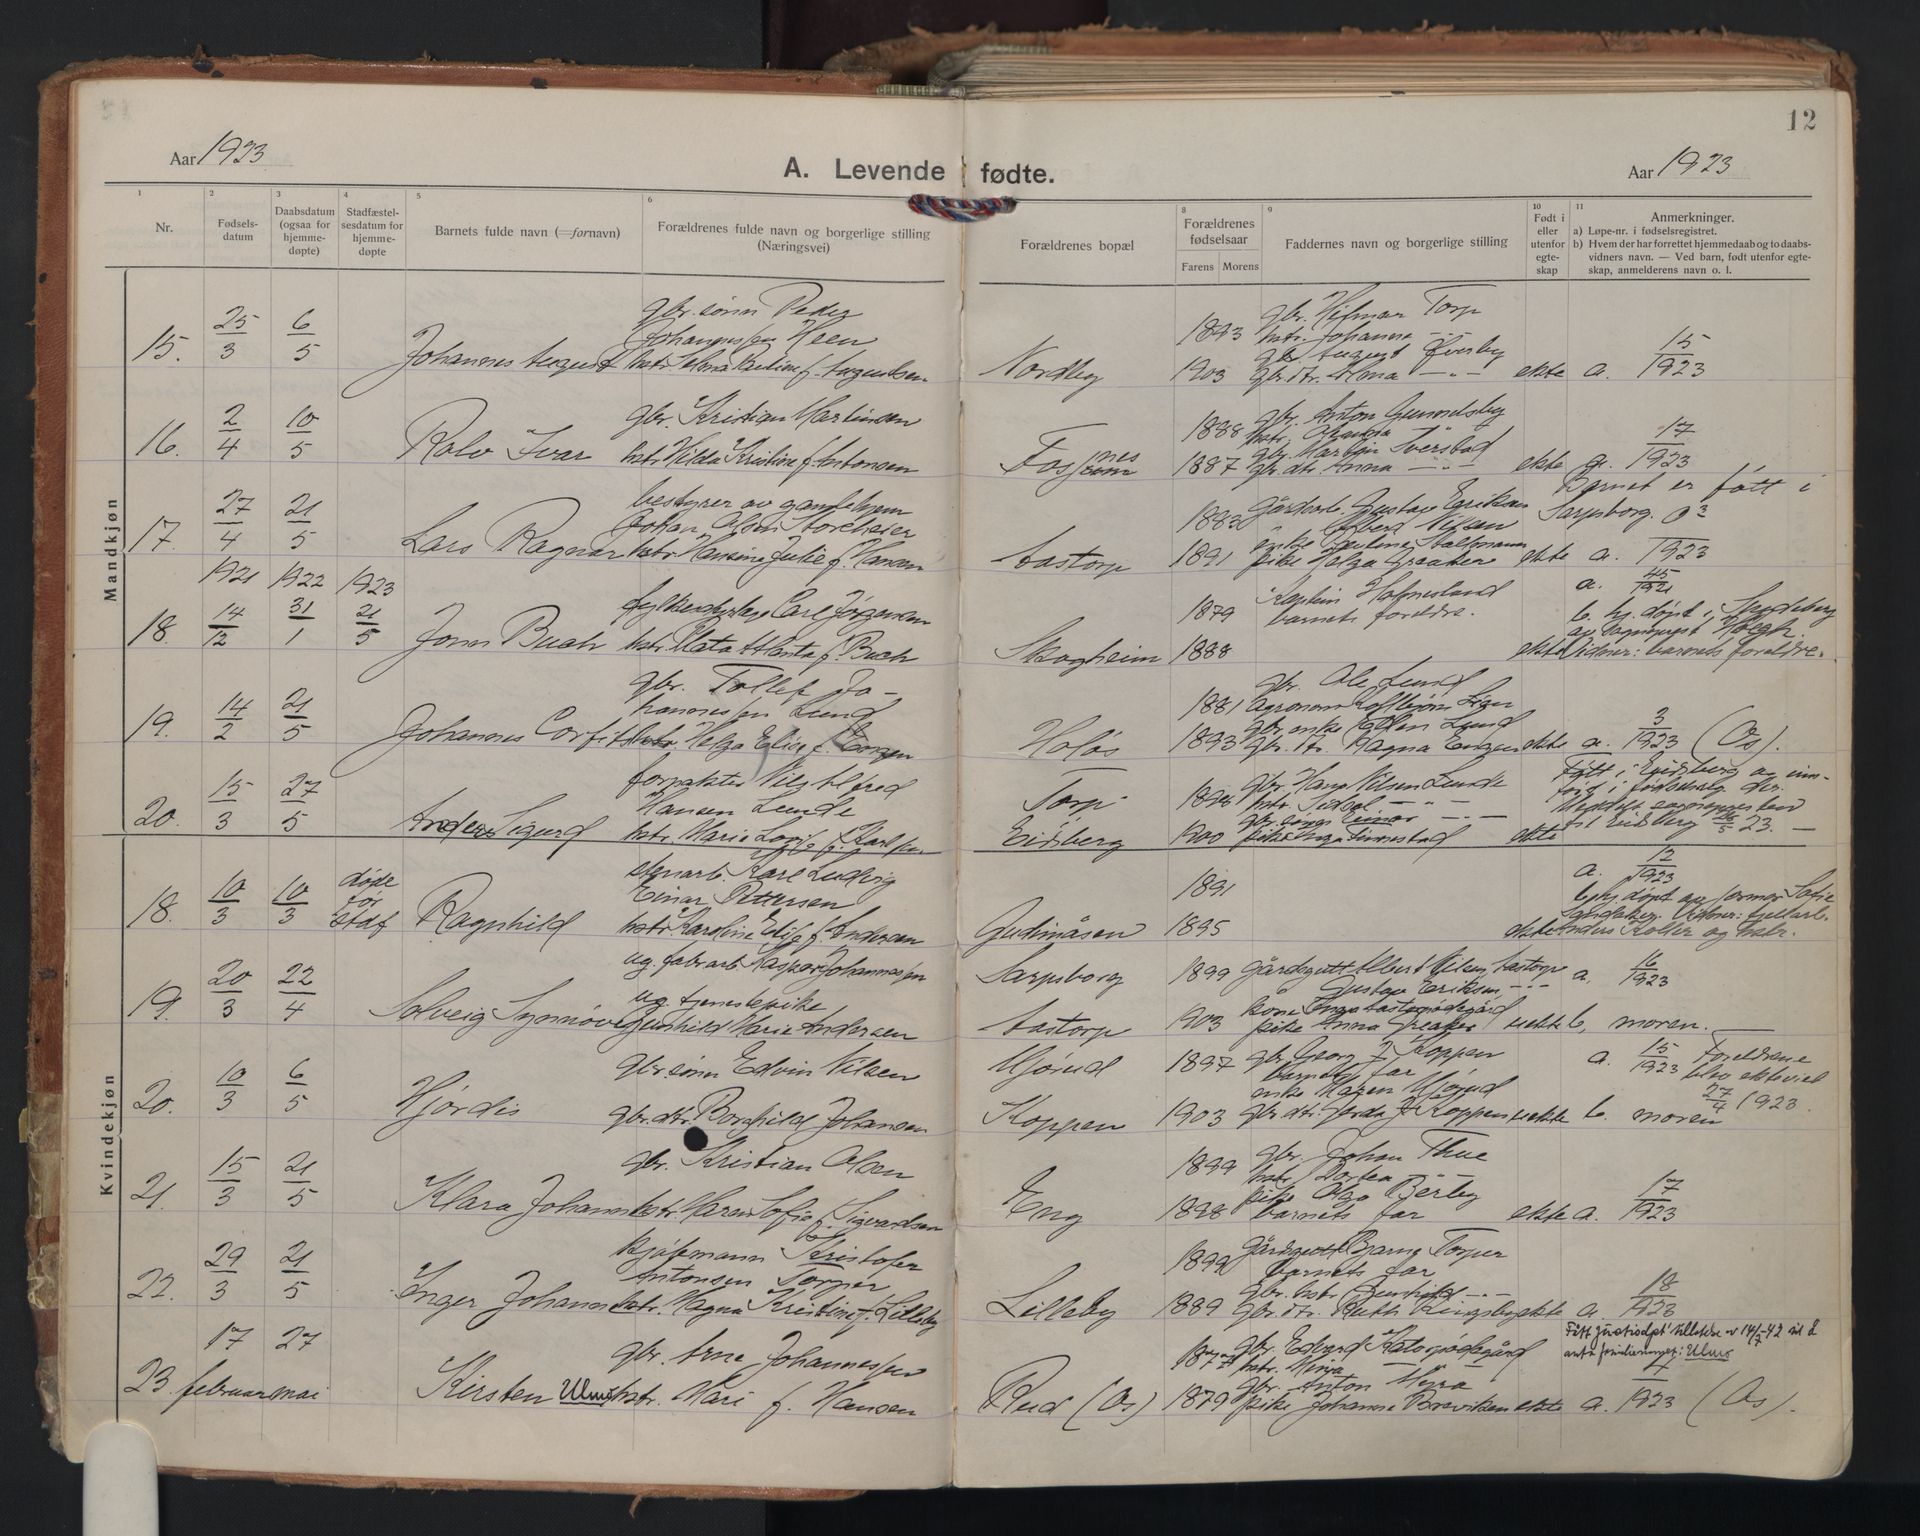 12
Aar 1923
A. Levende fødte.
Aar 1923
1 2 3 4 5 6 8 9 10 11
Nr.
Fødsels-
datum
Daabsdatum
(ogsaa for
hjemme-
døpte)
Stadfæstel-
sesdatum for
hjemme-
døpte
Barnets fulde navn (=fornavn)
Forældrenes fulde navn og borgerlige stilling
(Næringsvei)
Forældrenes bopæl
Forældrenes
fødselsaar
Farens Morens
Faddernes navn og borgerlige stilling
Født i
eller
utenfor
egte-
skap
Anmerkninger.
a) Løpe-nr. i fødselsregistret.
b) Hvem der har forrettet hjemmedaab og to daabs-
vidners navn. — Ved barn, født utenfor egte-
skap, anmelderens navn o. l.
Mandkjøn
15. 25/3 6/5 Johannes August
gbr. sønn Peder
Johannessen Heen
hstr. Selma Pauline f. Augundsen
Nordby
1893
1903
gbr. Hilmar Torp
hstr. Johanne -"-
gbr. August Øverby
gbr. dtr. Alma -"-
ekte a. 15/1923
16. 2/4 10/5 Rolv Ivar
gbr. Kristian Martinsen
hstr. Hilda Kristine f. Antonsen
Fosnes
1888
1887
gbr. Anton
gbr. Martin Tverstad
gbr. dtr. Anna -"-
ekte a. 17/1923
17. 27/4 21/5 Lars Ragnar
bestyrer av gamlehjem
Johan Olsen
hstr. Hansine Julie f. Hansen
Aastorp
1883
1891
Gustav Eriksen
Albert Nilsen
enke Pauline
pike Helga Greaker
ekte Barnet er født i
Sarpsborg.
a. 1923
18. 1921 14/12 1922 31/1 1923 21/5 Jonn Buch
Carl Jørgensen
hstr. Marta f. Buch
Skogheim
1879
1888
Kaptein Holmesland
barnets foreldre.
ekte
a. 45/1921
b. hj. døpt i Spydeberg
av sogneprest
Vidner: barnets foreldre.
19. 14/2 21/5 Johannes Corfits
gbr. Tollef Jo-
hannessen Lund
hstr. Helga Elise f. Engen
Holøs
1881
1893
gbr. Ole Lund
Agronom
gbr. enke Ellen Lund
gbr. dtr. Ragna Engen
ekte a. 3/1923 (Os).
20. 15/3 27/5 Anders Sigurd
forpakter Nils Alfred
Hansen Lunde
hstr. Marie Lovise f. Karlsen
Torp
Eidsberg
1898
1900
gbr. Hans Nilsen Lunde
hstr. -"-
gbr. sønn Einar -"-
pike Inga
ekte
Født i Eidsberg og inn-
ført i fødselsreg. der.
Meddelt sognepresten
til Eidsberg 23.—
Kvindekjøn
18. 10/3 10/3 døde før stadf. Ragnhild
stenarb. Karl Ludvig
Einar Pettersen
hstr. Karoline Elise f. Andersen
Gudimåsen
1891
1895
ekte
a. 12/1923
b. hj. døpt av jormor Sofie
Sandaker. Vidner: fjellarb.
Anders Koller og hstr.
19. 20/3 22/4 Solveig Synnøve
ug. fabrarb. Kasper Johannessen
ug. tjenestepike
Gunhild Marie Andersen
Sarpsborg
Aastorp
1899
1903
Gårdsgutt Albert Nilsen Aastorp
Gustav Eriksen -"-
kone Inga
pike Anna Greaker
uekte
a. 16/1923
b. moren.
20. 10/3 6/5 Hjørdis
gbr. sønn Edvin Nilsen
gbr. dtr. Borghild Johansen
Mjørud
Koppen
1897
1903
gbr. Georg J. Koppen
barnets far
enke Maren Mjørud
gbr. dtr. Gerda J. Koppen
uekte
a. 15/1923
b. moren
Foreldrene
blev ekteviet
27/4 1923.
21. 15/3 21/5 Klara Johanne
gbr. Kristian Olsen
hstr. Maren Sofie f. Sigvardsen
Eng
1899
1898
gbr. Johan Thue
hstr. Dortea -"-
pike Olga Bjerby
barnets far
ekte a. 17/1923
22. 29/3 21/5 Inger Johanne
kjøpmann Kristofer
Antonsen Torper
hstr. Magna Kristine f. Lilleby
Lilleby
1899
1889
Gårdsgutt Bjarne Torper
barnets far
gbr. hstr. Gunhild -"-
gbr. dtr. Ruth Ringsby
ekte a. 18/1923
23. 17 februar 27 mai Kirsten Ulms
gbr. Arne Johannessen
hstr. Mari f. Hansen
Rud (Os)
1877
1879
gbr. Edvard
hstr. Mina
gbr. Anton Myra
pike Johanne Breviken
ekte
Fått justisdpt' tillatelse av 14/7-42 til å
anta familienavnet: Ulms
a. 4/1923 (Os).